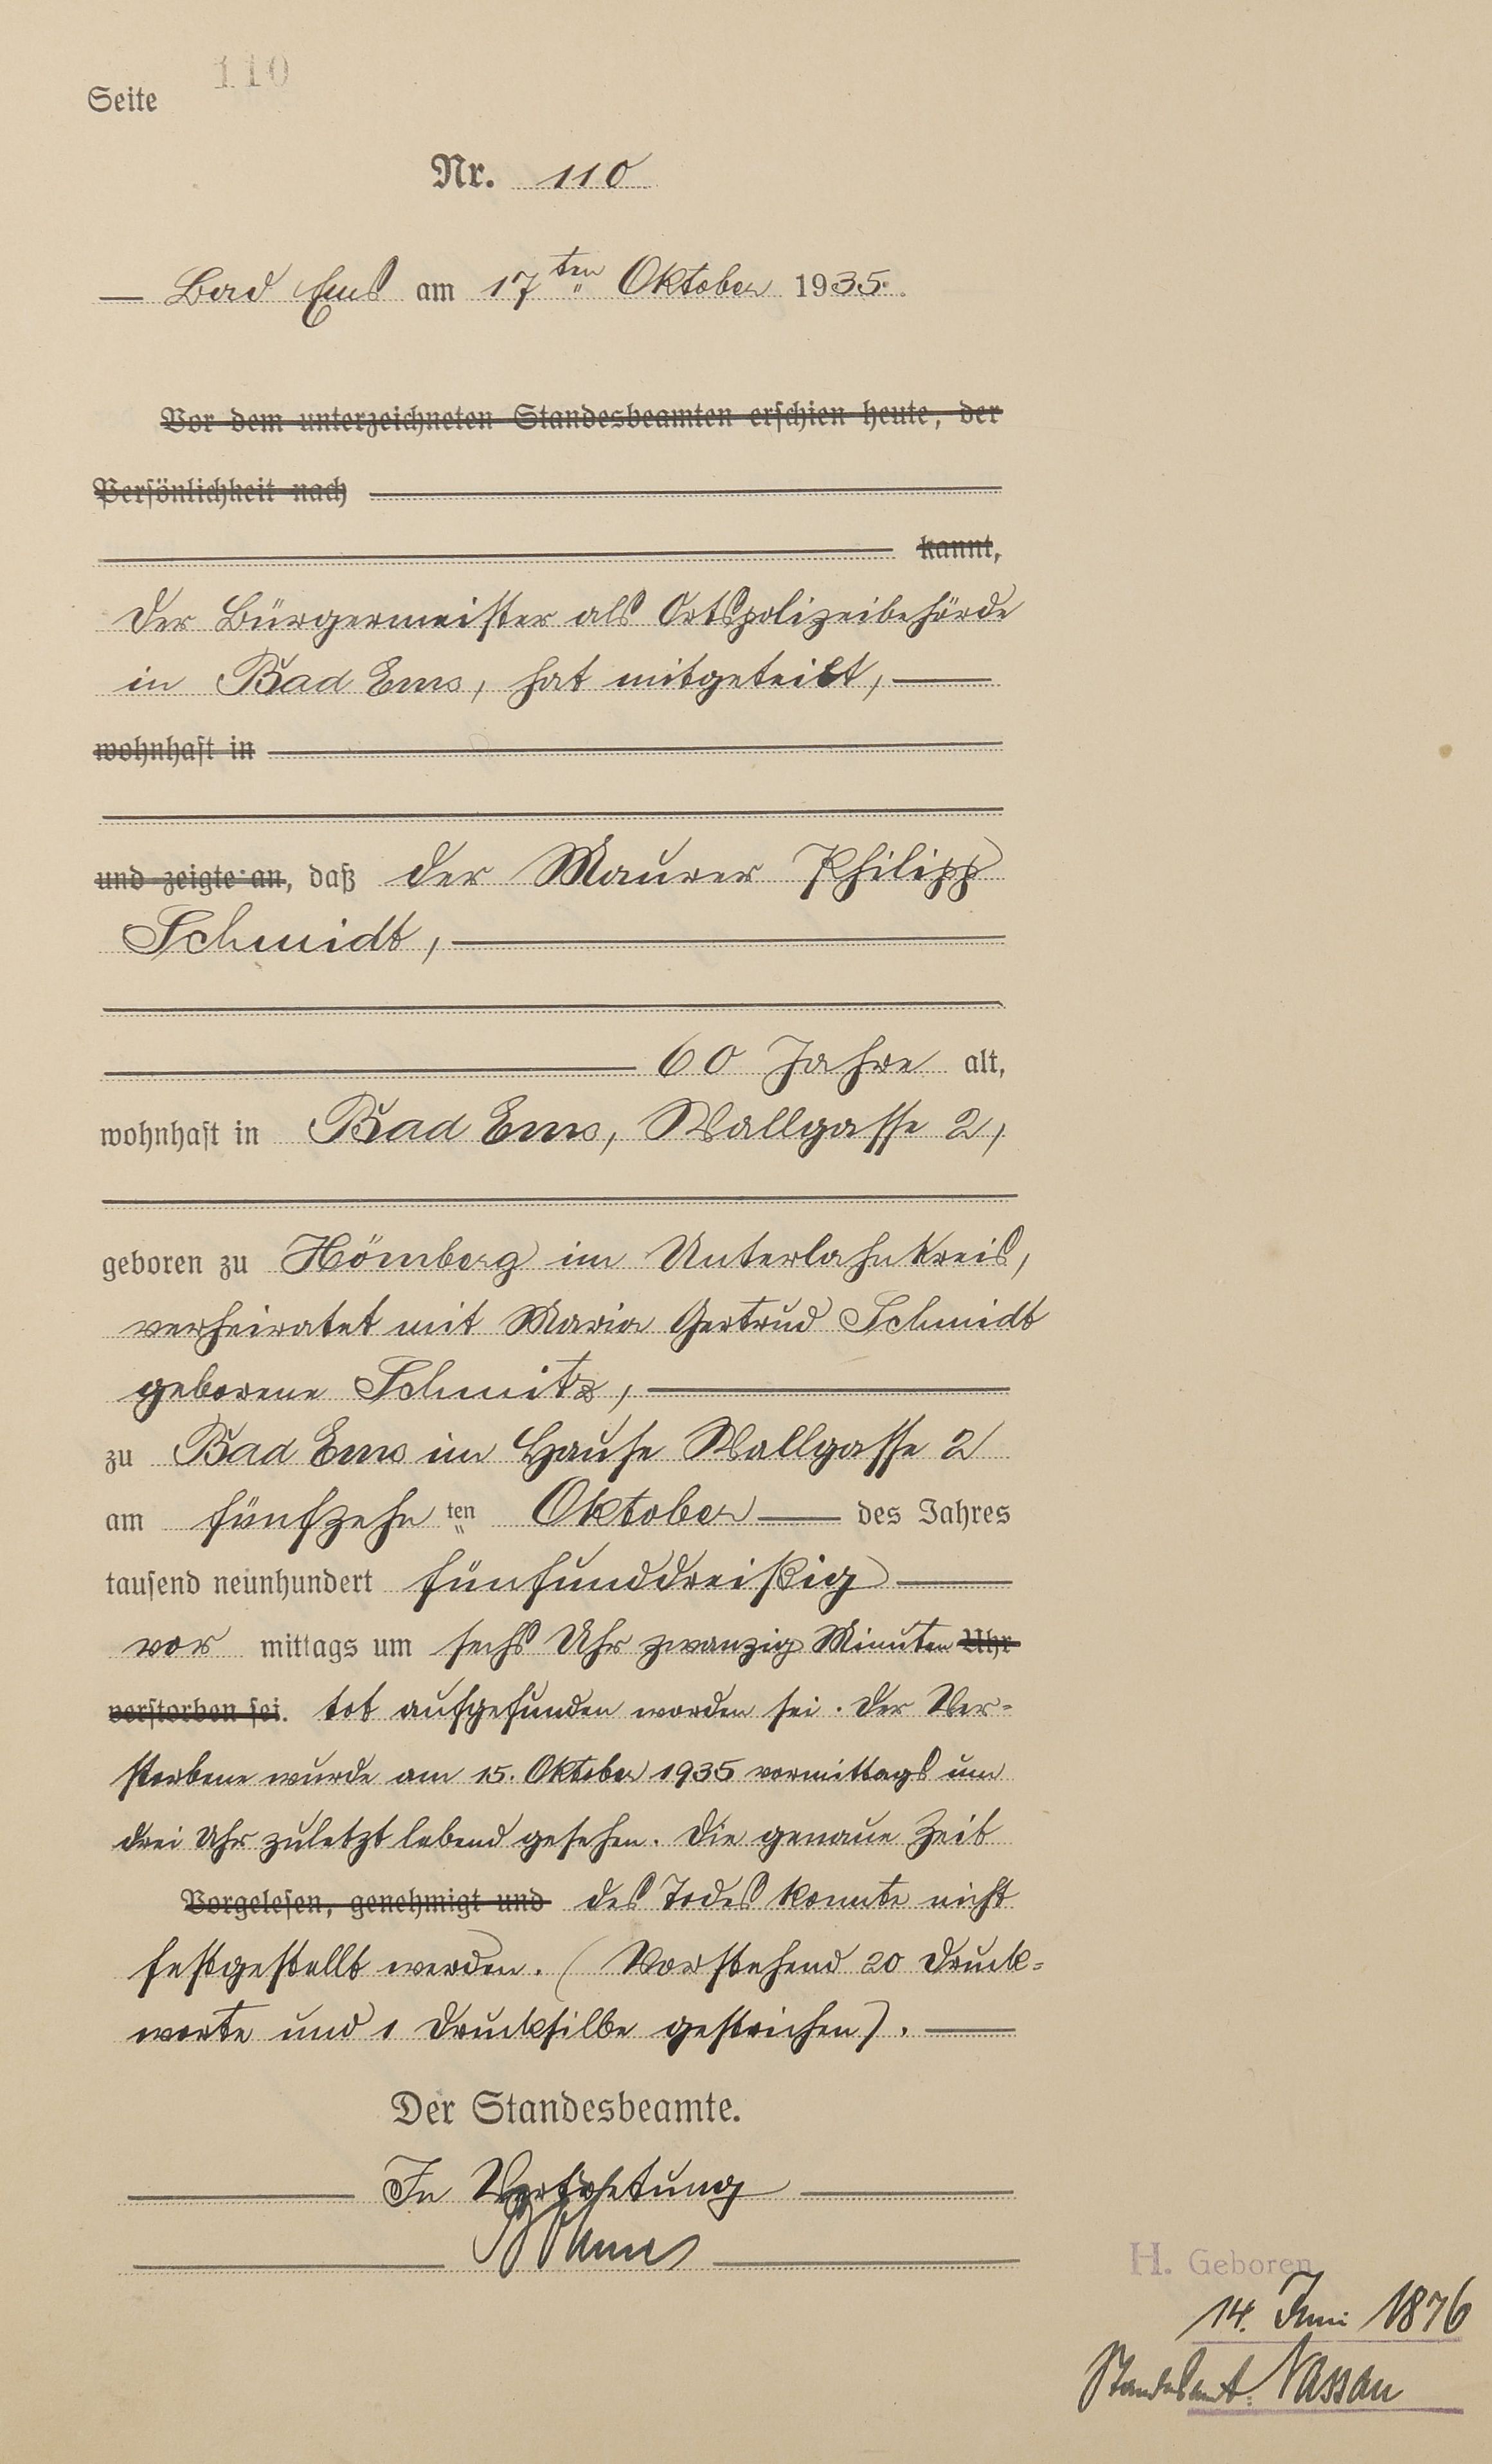 Seite 110
Nr. 110
Bad Ems am 17ten Oktober 1935.
Vor dem unterzeichneten Standesbeamten erschien heute, der
Persönlichkeit nach
kannt,
Der Bürgermeister als Ortspolizeibehörde
in Bad Ems, hat mitgeteilt,
wohnhaft in
und zeigte an, daß der Maurer Philipp
Schmidt,
60 Jahre alt,
wohnhaft in Bad Ems, Wallgasse 2,
geboren zu Hömberg im Unterlahnkreis,
verheiratet mit Maria Gertrud Schmidt
geborene Schmitz,
zu Bad Ems im Hause Wallgasse 2
am fünfzehn ten Oktober des Jahres
tausend neunhundert fünfunddreißig
vor mittags um sechs Uhr zwanzig Minuten Uhr
verstorben sei. tot aufgefunden worden sei. Der Ver-
storbene wurde am 15. Oktober 1935 vormittags um
drei Uhr zuletzt lebend gesehen. Die genaue Zeit
Vorgelesen, genehmigt und des Todes konnte nicht
festgestellt werden. (Vorstehend 20 Druck-
worte und 1 Drucksilbe gestrichen).
Der Standesbeamte.
In Vertretung
H. Geboren
14. Juni 1876
Standesamt Nassau